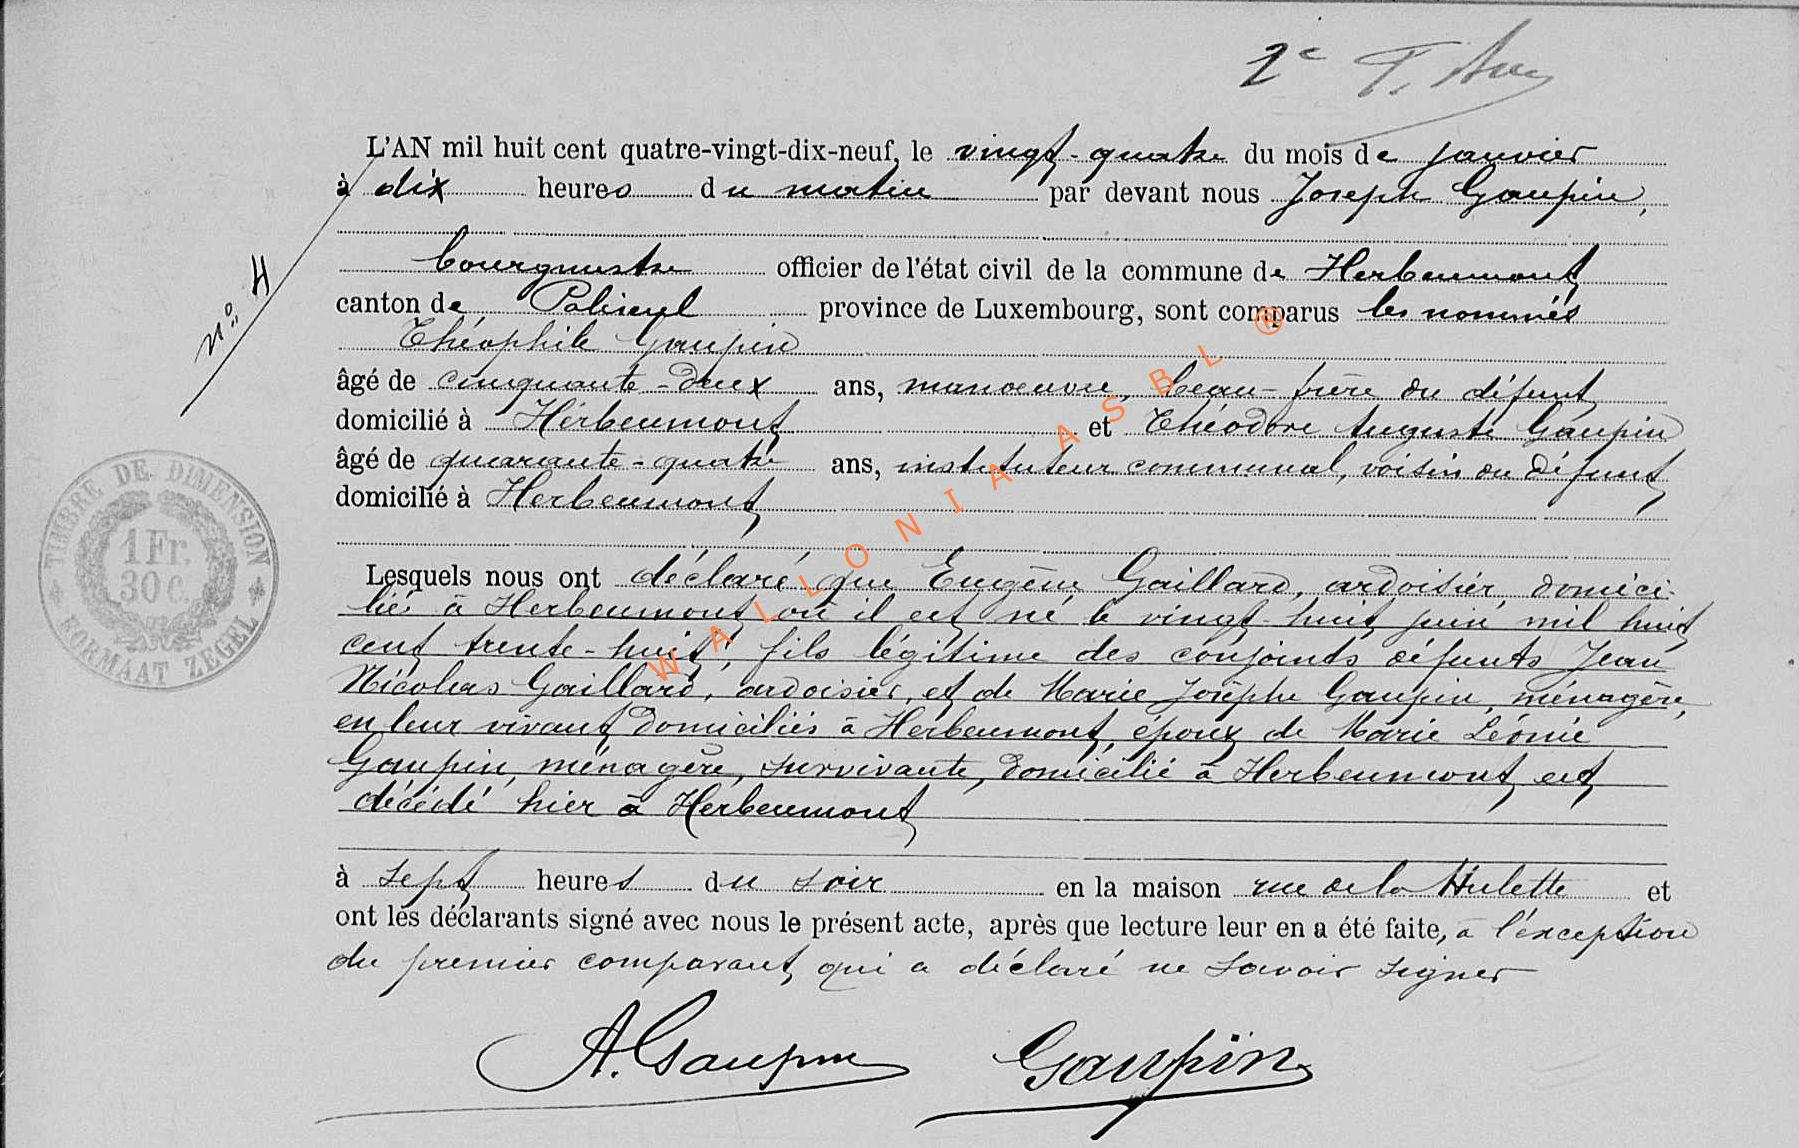 2e
L'AN mil huit cent quatre-vingt-dix-neuf, le vingt-quatre du mois de janvier
à dix heures du matin par devant nous Joseph Gaupin,
bourgmestre officier de l'état civil de la commune de Herbeumont
canton de Paliseul province de Luxembourg, sont comparus les nommés
Théophile Gaupin
âgé de cinquante-deux ans, manoeuvre, beau-frère du défunt
domicilié à Herbeumont et Théodore Auguste Gaupin
âgé de quarante-quatre ans, instituteur communal, voisin du défunt
domicilié à Herbeumont
N° 4
TIMBRE DE DIMENSION
1 Fr.
30 C.
FORMAAT ZEGEL
Lesquels nous ont déclaré que Eugène Gaillard, ardoisier, domici-
lié à Herbeumont où il est né le vingt-huit juin mil huit
cent trente-huit, fils légitime des conjoints défunts Jean
Nicolas Gaillard, ardoisier, et de Marie Josèphe Gaupin, ménagère,
en leur vivant domiciliés à Herbeumont, époux de Marie Léonie
Gaupin, ménagère, survivante, domicilié à Herbeumont, est
décédé hier à Herbeumont
à sept heures du soir en la maison rue de la Hulette et
ont les déclarants signé avec nous le présent acte, après que lecture leur en a été faite, à l'exception
du premier comparant, qui a déclaré ne savoir signer
A. Gaupin Gaupin
WALLONIA ASBL ®